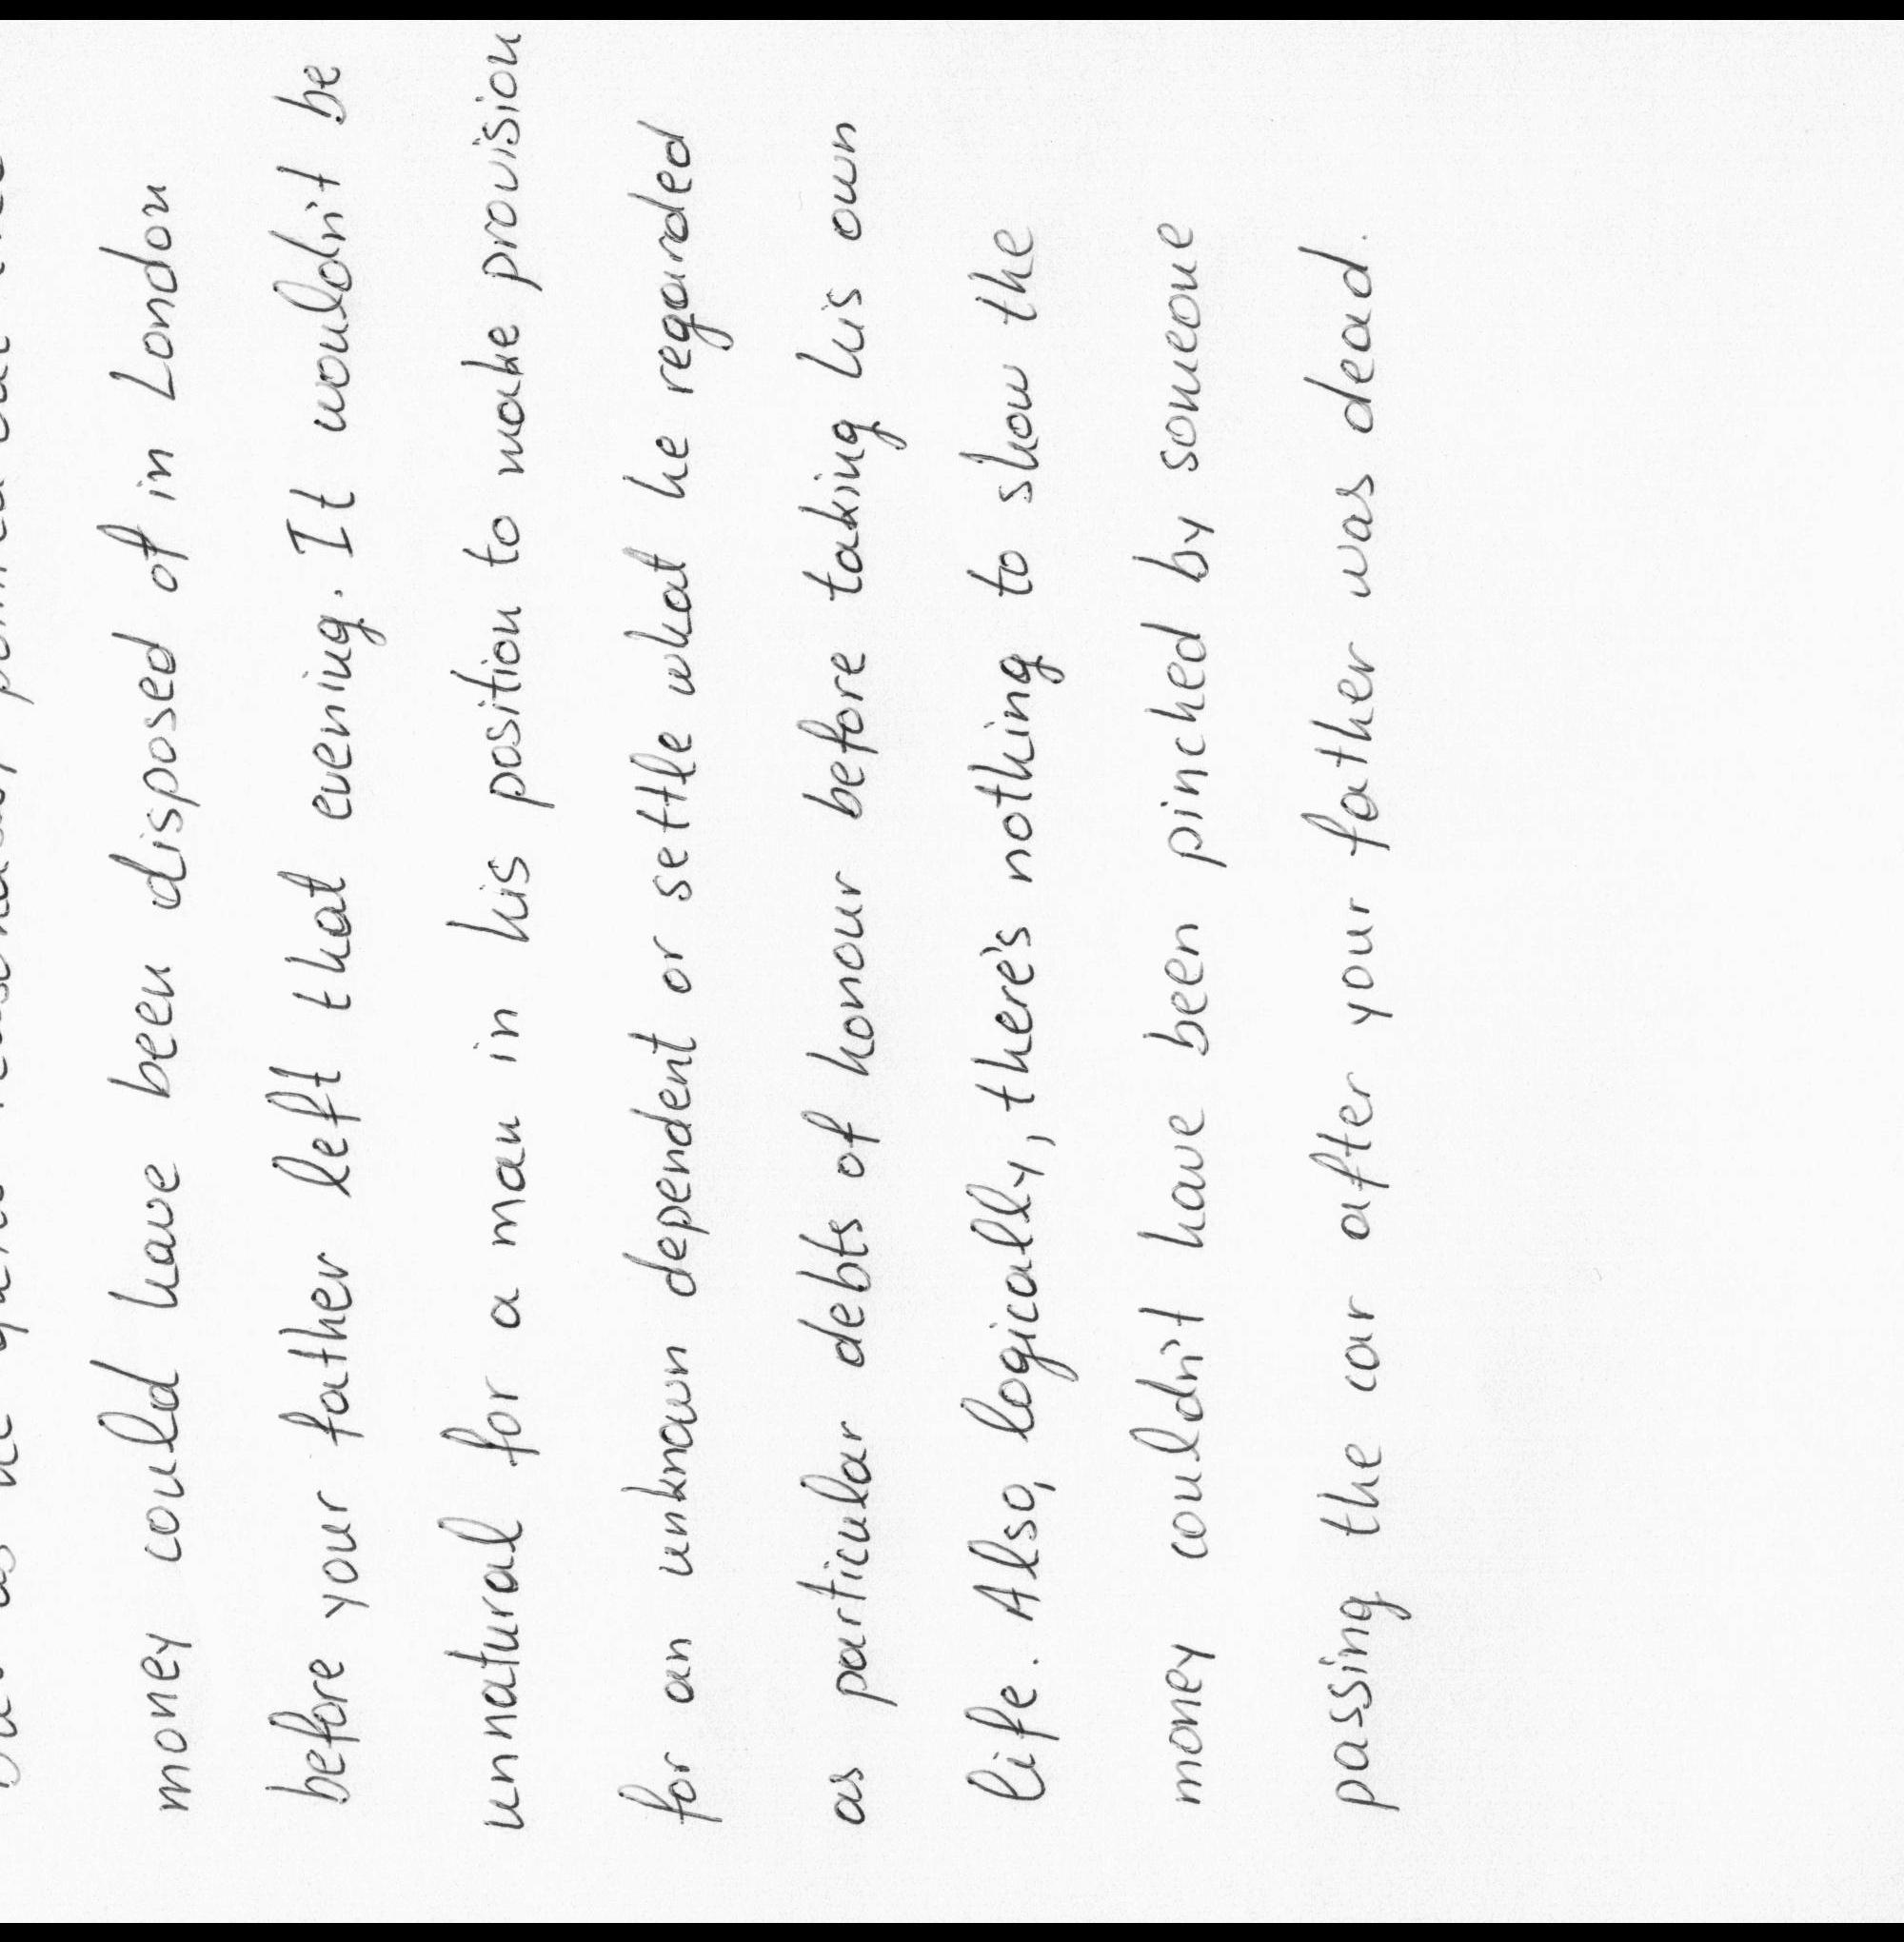 money could have been disposed of in London
before your father left that evening. It wouldn't be
unnatural for a man in his position to make provision
for an unknown dependent or settle what he regarded
as particular debts of honour before taking his own
life. Also, logically, there's nothing to show the
money couldn't have been pinched by someone
passing the car after your father was dead.